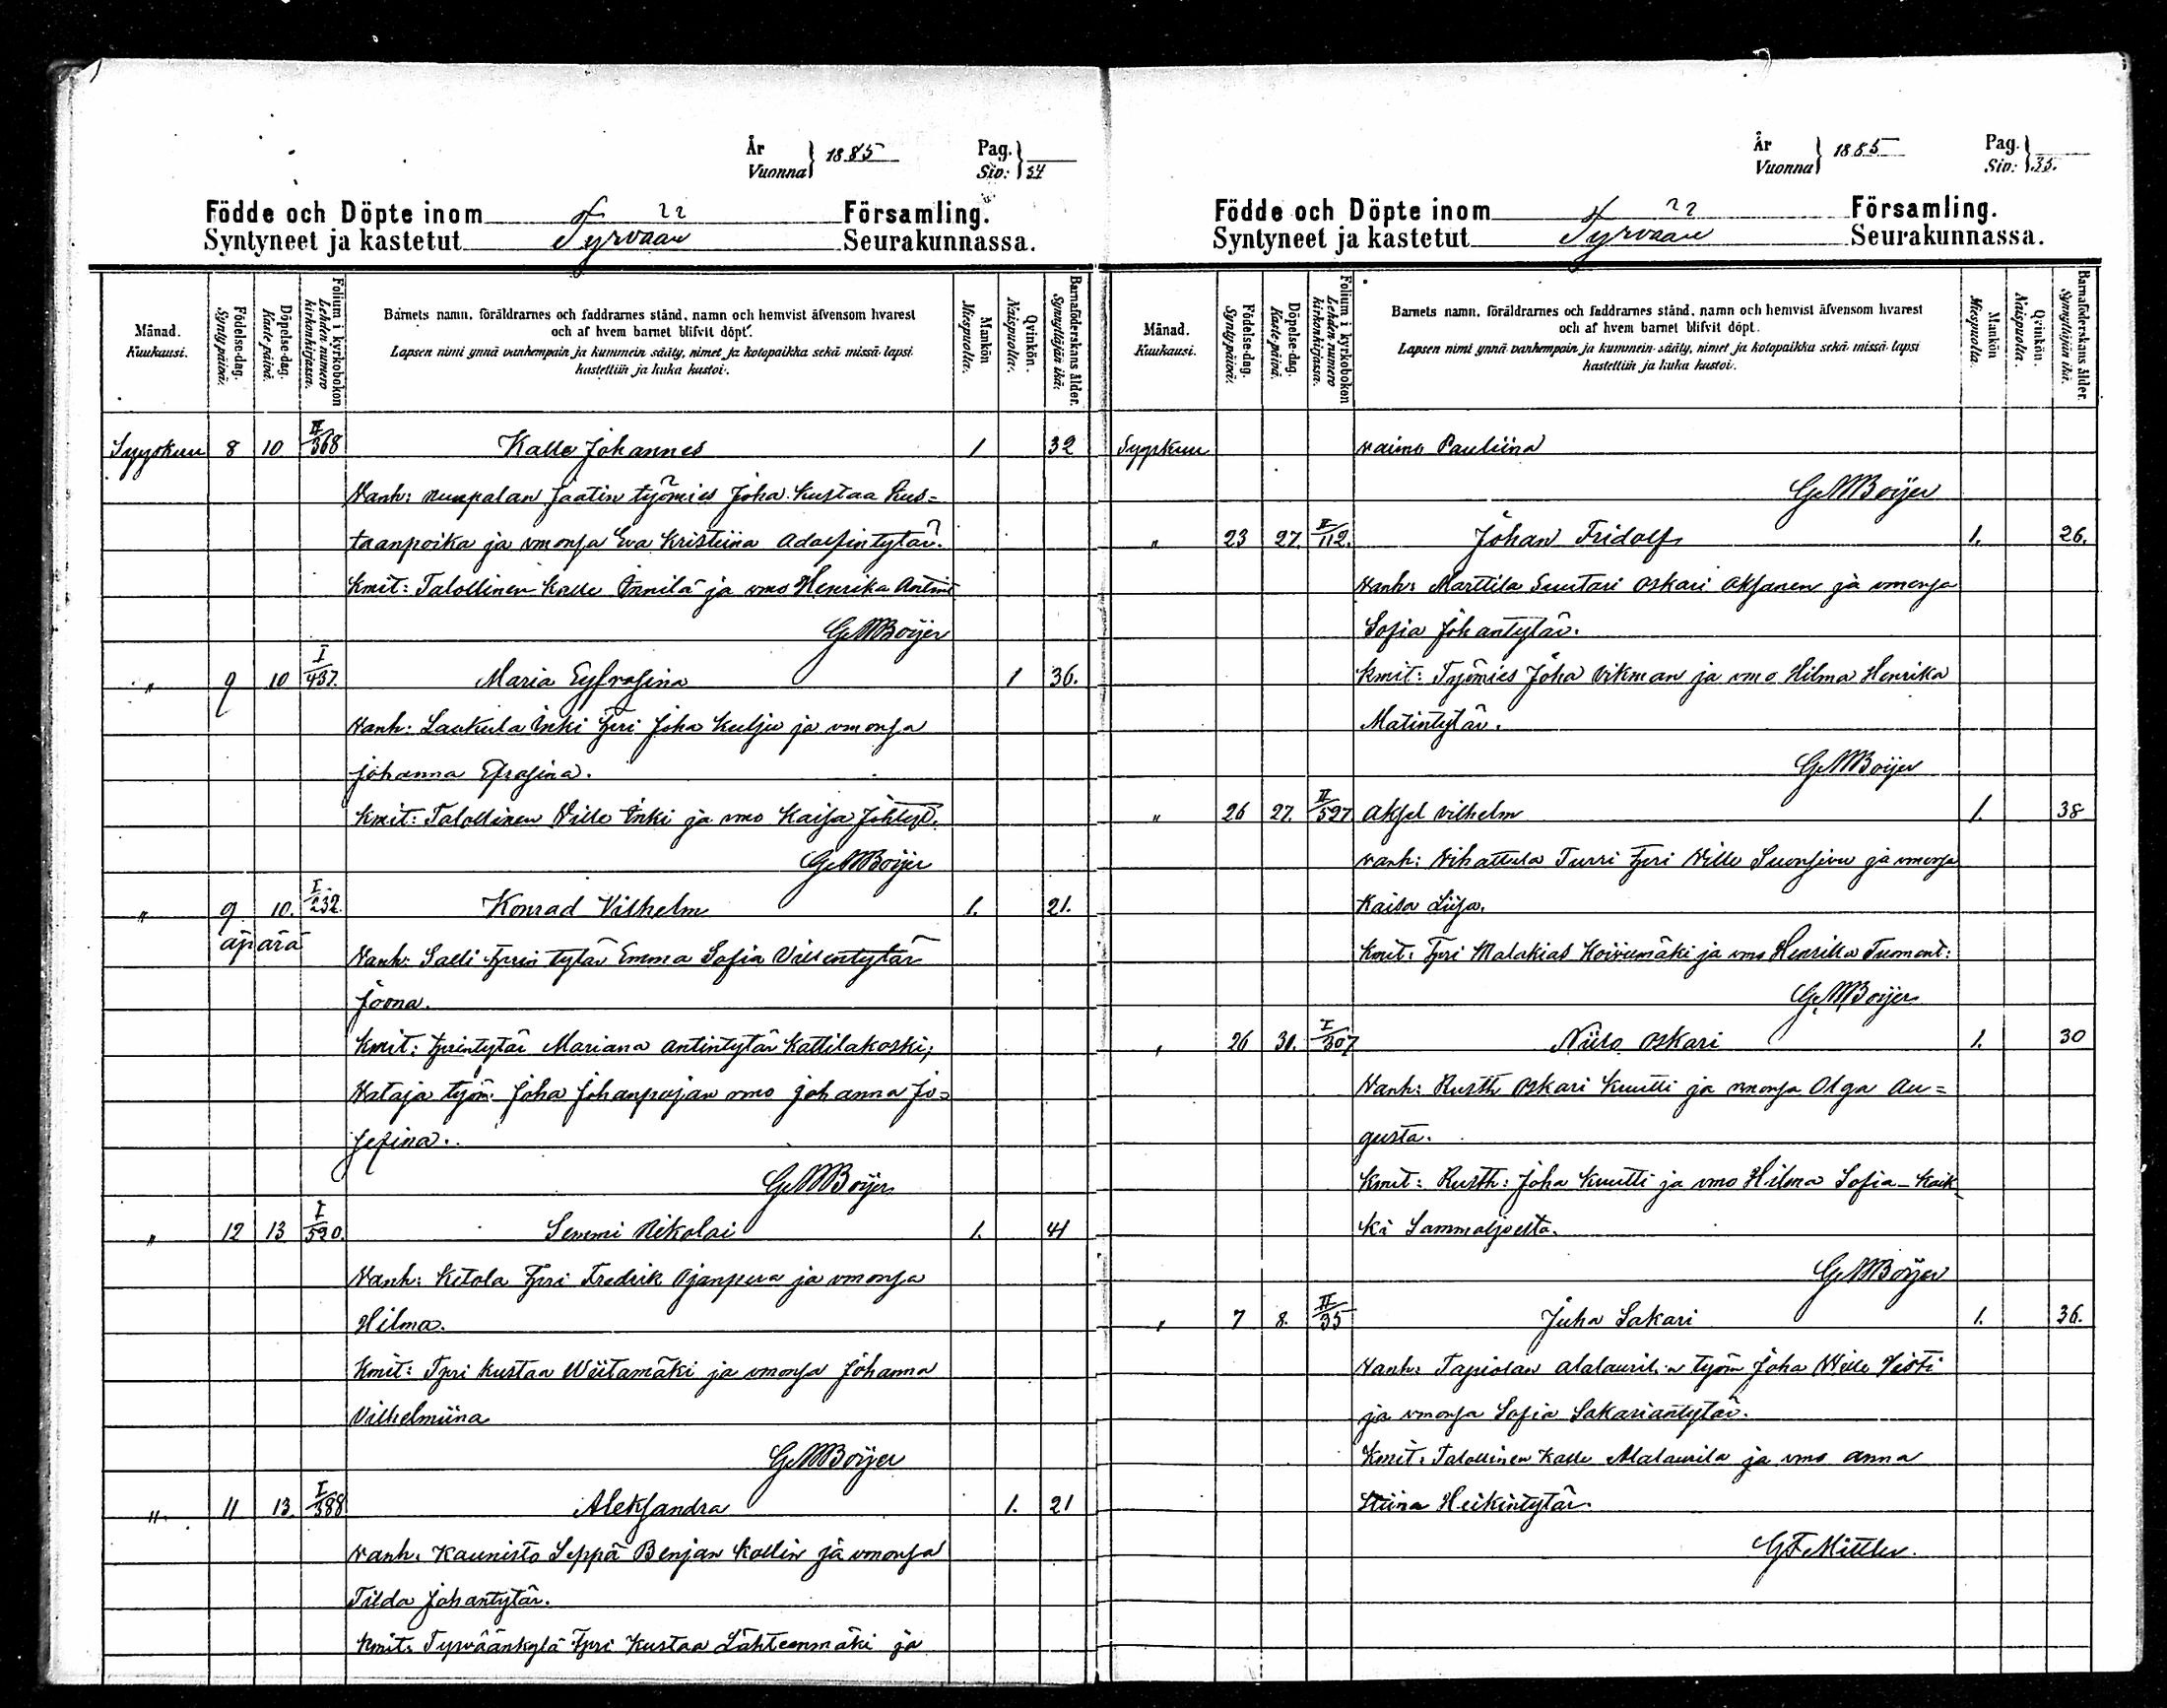 År Vuonna 1885 Pag. Siv: 34
Födde och Döpte inom Församling.
Syntyneet ja kastetut Tyrvään Seurakunnassa.
Månad. Kuukausi.
Födelse-dag. Synty-päivä.
Döpelse-dag. Kaste-päivä.
Folium i kyrkoboken Lehden numero kirkonkirjassa.
Barnets namn, föräldrarnes och faddrarnes stånd, namn och hemvist äfvensom hvarest
och af hvem barnet blifvit döpt.
Lapsen nimi ynnä vanhempain ja kummein sääty, nimet ja kotopaikka sekä missä lapsi
kastettiin ja kuka kastoi.
Mankön Miespuolta.
Qvinkön. Naispuolta.
Barnaföderskans ålder. Synnyttäjän ikä.
Syyskuu 8 10 II/368 Kalle Johannes 1 32
Vanh: Nuupalan Jaatin työmies Joha Kustaa Kus-
taanpoika ja vmonsa Eva Kristiina Adolfintytär.
Kmit: Talollinen Kalle Innilä ja vmo Henrika Antint
GMBoijer
" 9 10 I/437. Maria Eyfrosina 1 36.
Vanh: Laukula Inki Tpri Joha Kulju ja vmonsa
Johanna Efrosina.
Kmit: Talollinen Ville Inki ja vmo Kaisa Johtyt.
GMBoijer
" 9 10. I/232. Konrad Vilhelm 1. 21.
äpärä
Vanh: Salli tprin tytär Emma Sofia Villentytär
Joona.
Kmit: tprintytär Mariana Antintytär Kattilakoski;
Hataja työm. Joha Johanpojan vmo Johanna Jo-
sefina.
GMBoijer
" 12 13 I/590. Semmi Nikolai 1. 41
Vanh: Ketola Tpri Fredrik Ojanperä ja vmonsa
Hilma.
Kmit: Tpri Kustaa Wiitamäki ja vmonsa Johanna
Vilhelmiina
GMBoijer
" 11 13. I/388 Aleksandra 1. 21
Vanh. Kaunisto Seppä Benjam Kallin ja vmonsa
Tilda Johantytär.
Kmit: Tyrväänkylä Tpri Kustaa Lähteenmäki ja
År Vuonna 1885 Pag. Siv: 35.
Födde och Döpte inom Församling.
Syntyneet ja kastetut Tyrvään Seurakunnassa.
Månad. Kuukausi.
Födelse-dag. Synty-päivä.
Döpelse-dag. Kaste-päivä.
Folium i kyrkoboken Lehden numero kirkonkirjassa.
Barnets namn, föräldrarnes och faddrarnes stånd, namn och hemvist äfvensom hvarest
och af hvem barnet blifvit döpt.
Lapsen nimi ynnä vanhempain ja kummein sääty, nimet ja kotopaikka sekä missä lapsi
kastettiin ja kuka kastoi.
Mankön Miespuolta.
Qvinkön. Naispuolta.
Barnaföderskans ålder. Synnyttäjän ikä.
Syyskuu vaimo Pauliina
GMBoijer
" 23 27. II/112. Johan Fridolf 1. 26.
Vanh: Marttila Suutari Oskari Oksanen ja vmonsa
Sofia Johantytär.
Kmit: Työmies Joha Vikman ja vmo Hilma Henrika
Matintytär.
GMBoijer
" 26 27. II/527 Aksel Vilhelm 1. 38
Vanh: Vihattula Turri Tpri Ville Suonsivu ja vmonsa
Kaisa Liisa.
Kmit: Tpri Malakias Koivumäki ja vmo Henrika Tuomont:
GMBoijer
" 26 30. I/307 Niilo Oskari 1. 30
Vanh: Rusth Oskari Kuutti ja vmonsa Olga Au-
gusta.
Kmit: Rusth: Joha Kuutti ja vmo Hilma Sofia - Kaik
ki Sammaljoelta.
GMBoijer
" 7 8. II/35 Juha Sakari 1. 36.
Vanh: Tapiolan Alalaurilan työm Joha Wille Visti
ja vmonsa Sofia Sakariantytär.
Kmit: Talollinen Kalle Alalaurila ja vmo Anna
Stiina Heikintytär.
GFMittler.